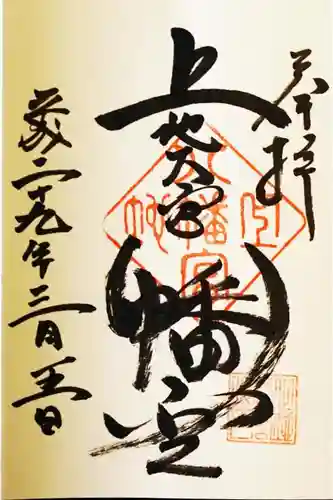 奉拝
上地大宮
八幡宮
平成二十九年三月五日